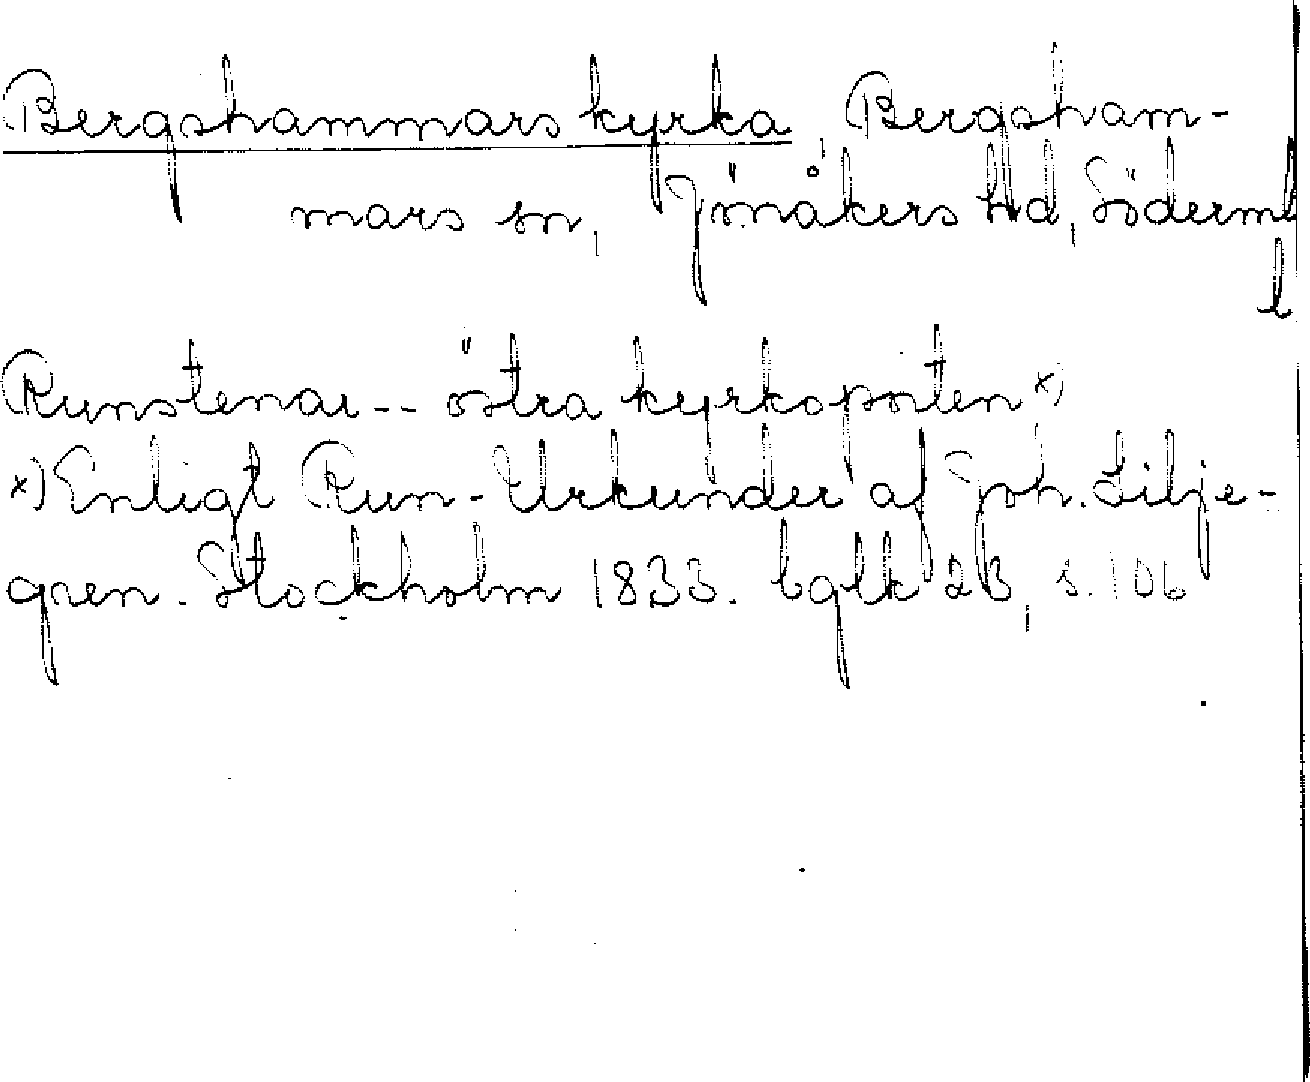 Bergshammars kyrka, Bergsham-
mars sn, Jönåkers hd, Söderml
l
Runstenar -- östra kyrkoporten x)
x) Enligt Run-Urkunder af Joh. Lilje-
gren. Stockholm 1833. bglk 23, s. 106